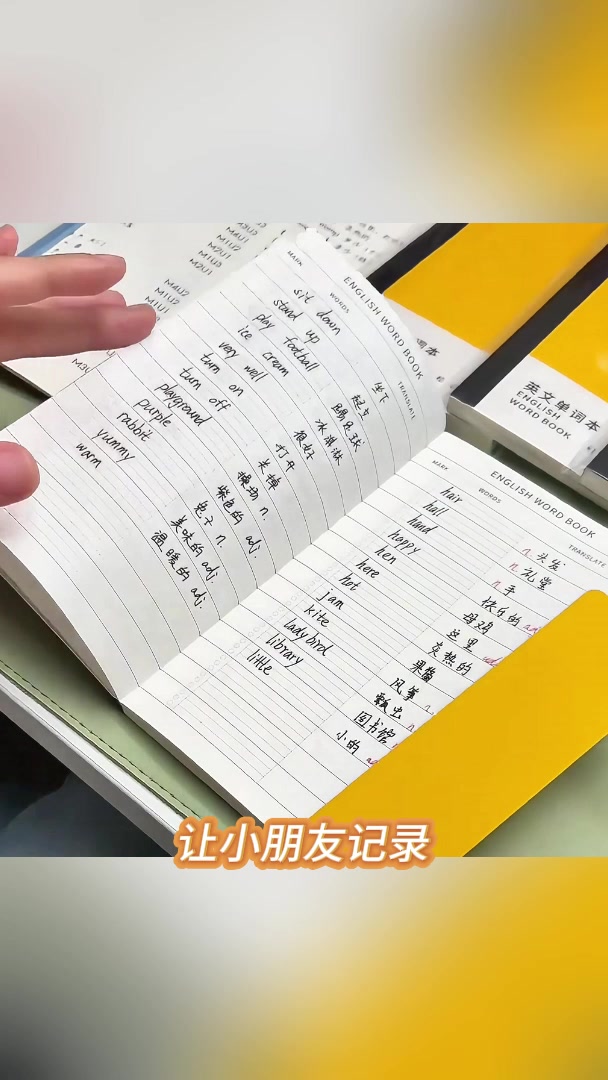 M4U1
M1U2
M1U3
M2U1
M4U2
M1U2
M1U1
MARK WORDS TRANSLATE
ENGLISH WORD BOOK
sit down 坐下
stand up 起立
play football 踢足球
ice cream 冰淇淋
very well 很好
turn on 打开
turn off 关掉
playground 操场 n.
purple 紫色的 adj.
rabbit 兔子 n.
yummy 美味的 adj.
warm 温暖的 adj.
ENGLISH WORD BOOK
MARK WORDS TRANSLATE
hair n. 头发
hall n. 礼堂
hand n. 手
happy 快乐的
hen 母鸡
here 这里
hot 炎热的
jam 果酱
kite 风筝 n.
ladybird 瓢虫
library 图书馆
little 小的
词本
BOOK
英文单词本
ENGLISH
WORD BOOK
让小朋友记录